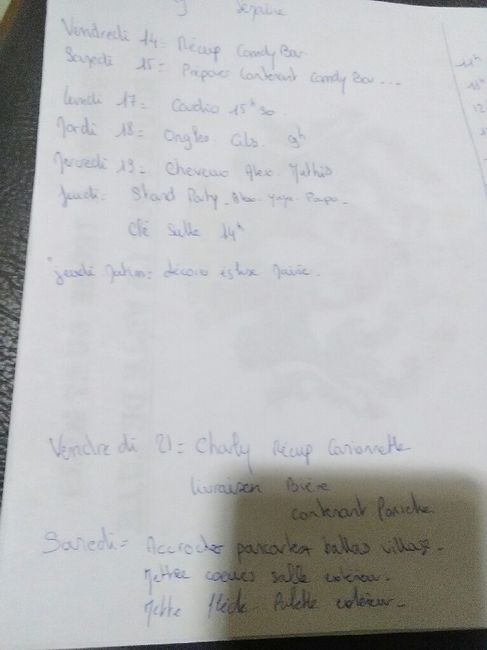 Semaine
Vendredi 14 = Récup Candy Bar
Samedi 15 = Préparer contenant Candy Bar ...
Lundi 17 = Cardio 15h30.
Mardi 18 = Ongles Cils 9h
Mercredi 19 = Cheveux Alex Mathis
Jeudi = Stand Party - - Papa -
Clé Salle 14h
"jeudi matin = décore église Mairie.
Vendredi 21 = Charly Récup Camionnette
Livraison Bière
contenant
Samedi = Accrocher pancartes ballas village.
Mettre coeurs salle extérieur.
Mettre Palette extérieur.
11h
12